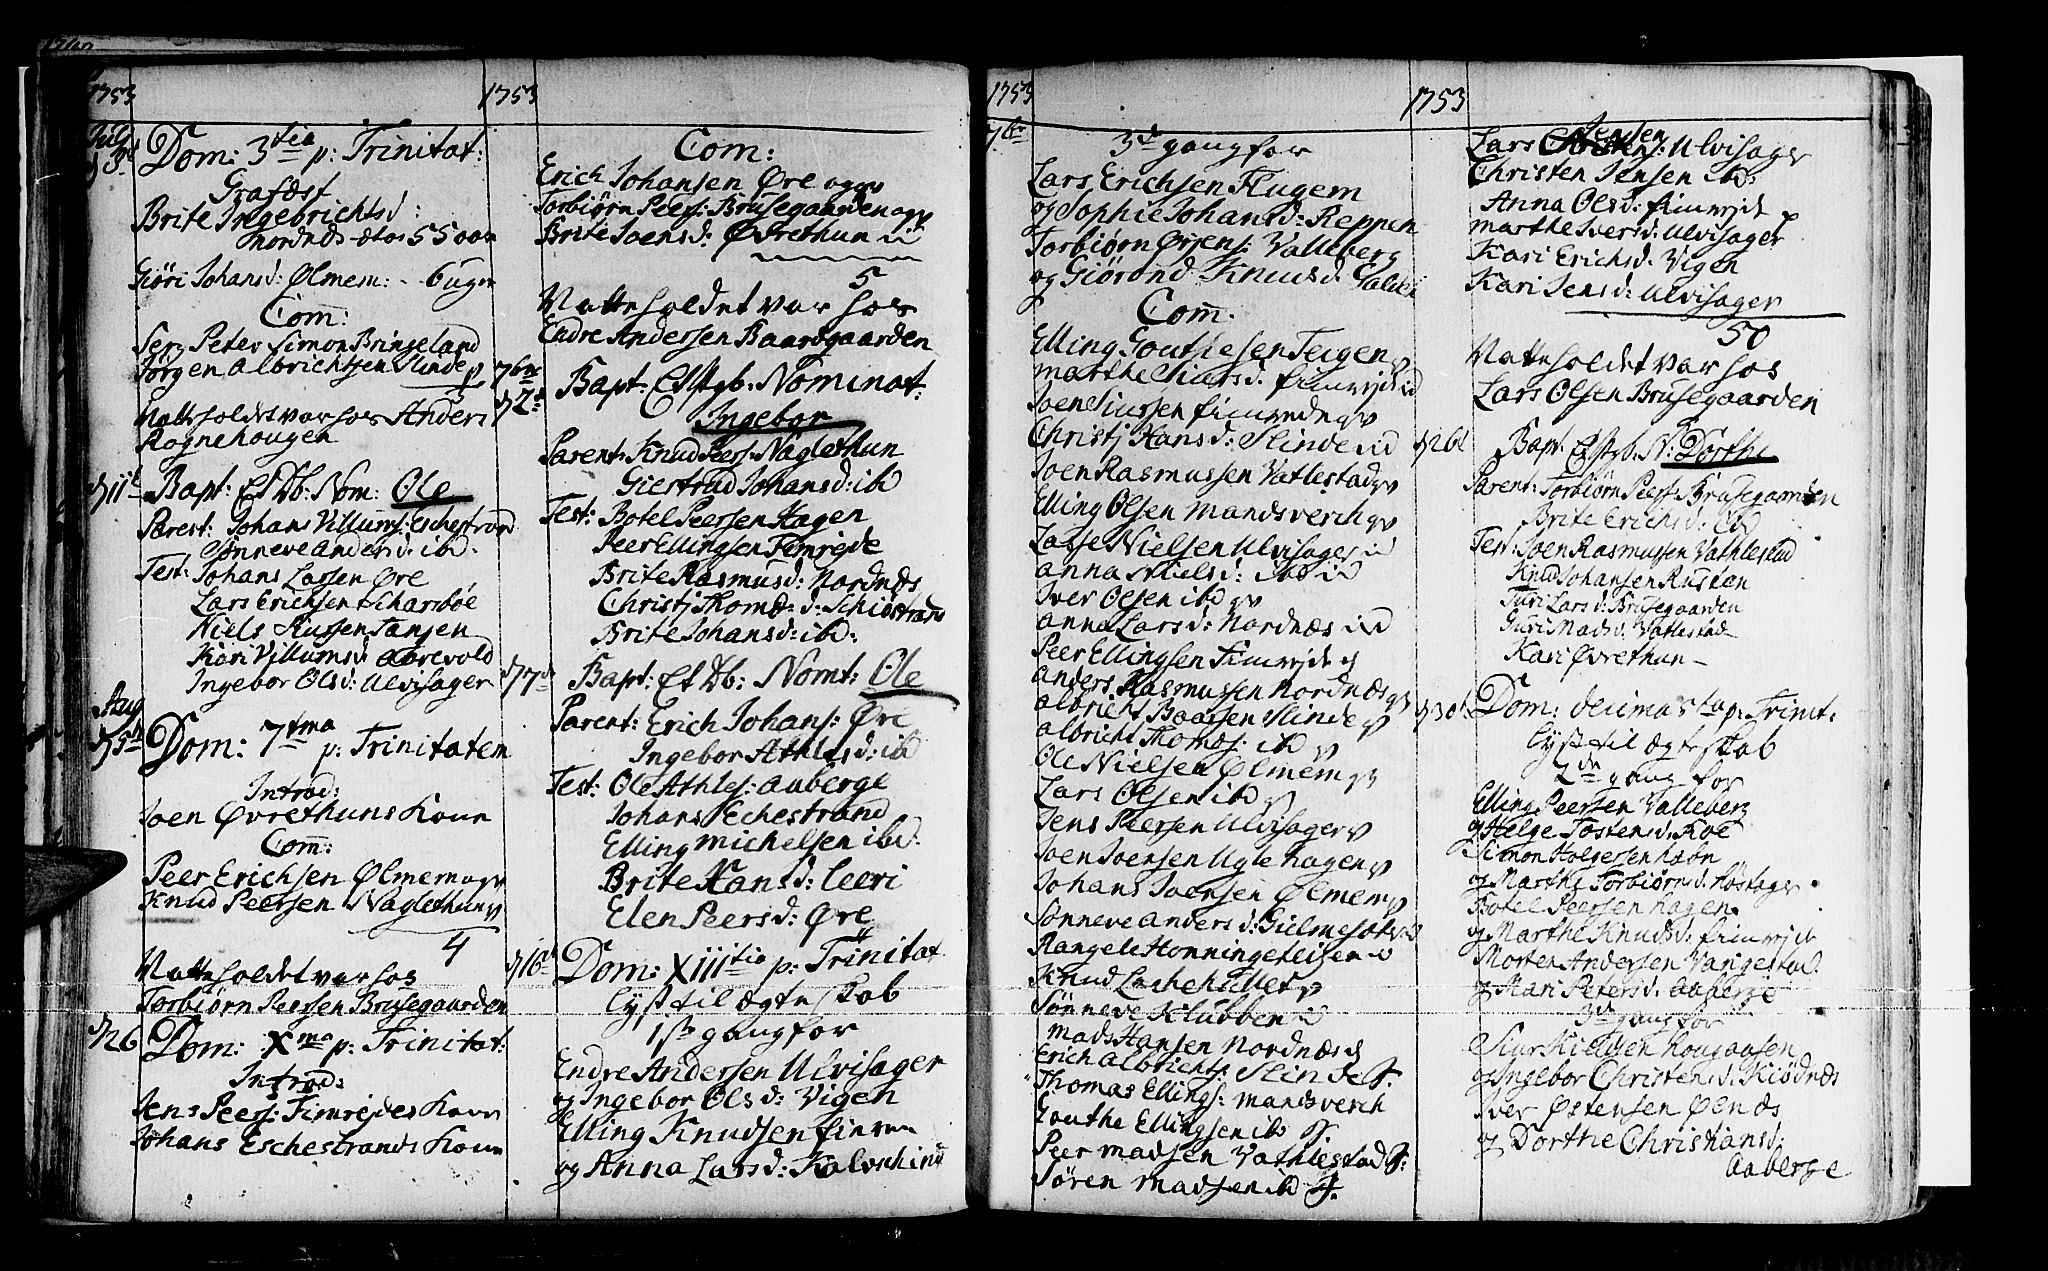 1753
1753
Dom: 3tia p: Trinitat:
Grafæst
Brite Ingebrichtsd:
Giøri Johansd: Ølmem: - 6 uger
Com:
Peter Simon Bringeland
Jørgen Albrichtsen Slinde
Natteholdet var hos Anders
Rognehougen
11t Bapt: Et Db: Nom: Ole
Parent: Johans Villumsen Eschestrand
Sønneve Andersd: ibd.
Test: Johans Larsen Øre
Lars Erichsen Scharsbøe
Niels
Kari Villumsd: Aarevold
Ingebor Olsd: Ulvisager
Aug
5t Dom: 7tma p: Trinitatem
Introd:
Joen Øvrethuns Kone
Com:
Peer Erichsen Ølmem
Knud Peersen Naglethun
4
Natteholdet var hos
Torbiørn Peersen Brusegaarden
26 Dom: Xma p: Trinitat:
Introd:
Jens Peers: Fimreides Kone
Johans Eschestrands Kone
Com:
Erich Johansen Øre
Torbiørn Peers: Brusegaarden
Brite Joensd: Øvrethun
5
Natteholdet var hos
Endre Andersen Baardgaarden
7br
2d Bapt: Et Nominat:
Ingebor
Parent: Knud Peers: Naglethun
Giertrud Johansd: ibd
Test: Botel Peersen Hagen
Peer Ellingsen Fimreide
Brite Rasmusd: Nordnæs
Brite Johansd: ibd:
7d Bapt: Et Db: Nomt: Ole
Parent: Erich Johans: Øre
Ingebor Athlesd: ibd
Test: Ole Athles: Aaberge
Johans Eschestrand
Elling Michelsen ibd.
Brite Hansd: Leeri
Elen Peersd: Øre
16d Dom: XIIItia p: Trinitat
Lyst til Ægteskab
1ste gang for
Endre Andersen Ulvisager
og Ingebor Olsd: Vigen
Elling Knudsen
og Anna Larsd: Kalvschin
1753
1753
7br
3d gang for
Lars Erichsen Flugem
og Sophie Johansd: Reppen
Torbiørn Ørjens: Valleberg
og Giørond Knuusd:
Com.
Elling Gouthesen Teigen
Marthe
Joen Siursen
Christj Hansd: Slinde
Joen Rasmussen Vatlestad
Elling Olsen Mandsverch
Lasse Nielsen Ulvisager
Anna Nielsd: ibd
Iver Olsen ibd
Anna Larsd: Nordnæs
Peer Ellingsen Fimrejde
Anders Rasmussen Nordnæs
Albricht Baarsen Slinde
Albricht Thomas: ibd
Ole Nielsen Ølmem
Lars Olsen ibd
Jens Peersen Ulvisager
Joen Joensen Uglehagen
Johans Iversen Ølmem
Sønneve Andersd: Gielmesæt
Rangele Honningeteigen
Knud Lachehillet
Sønneve Klubben
Mads Hansen Nordnæs
Erich Albrichts: Slinde
Thomas Ellings: Mandsverch
Gouthe Ellingsen ibd
Peer Madsen Vathlestad
Søren Madsen ibd
Lars Jensen Ulvisager
Christen Jensen ibd:
Anna Olsd: Fimrejde
Marthe Iversd: Ulvisager
Kari Erichsd: Vigen
Kari Jensd: Ulvisager
50
Natteholdet var hos
Lars Olsen Brusegaarden
26t Bapt: N: Dorthe
Parent: Torbiørn Peers: Brusegaarden
Brite Erichsd: ibd
Test: Joen Rasmussen Vathlestad
Knud Johansen Rustan
Turi Larsd: Brusegaarden
Guri Madsd: Vatlestad
Kari Øvrethun
30t Dom: decima p: Trinit:
Lyst til Ægteskab
2den gang for
Elling Peersen Valleberg
og Helge Tostensd: Koe
Simon Holgersen
og Marthe Torbiørnsd:
Botel Peersen Hagen
og Marthe Knudsd: Fimrejde
Morten Andersen Vangestad
og Mari Petersd: Aaberge
3d gang for
og Ingebor Christensd: Kiødnæs
Iver Østensen
og Dorthe Christiansd:
Aaberge